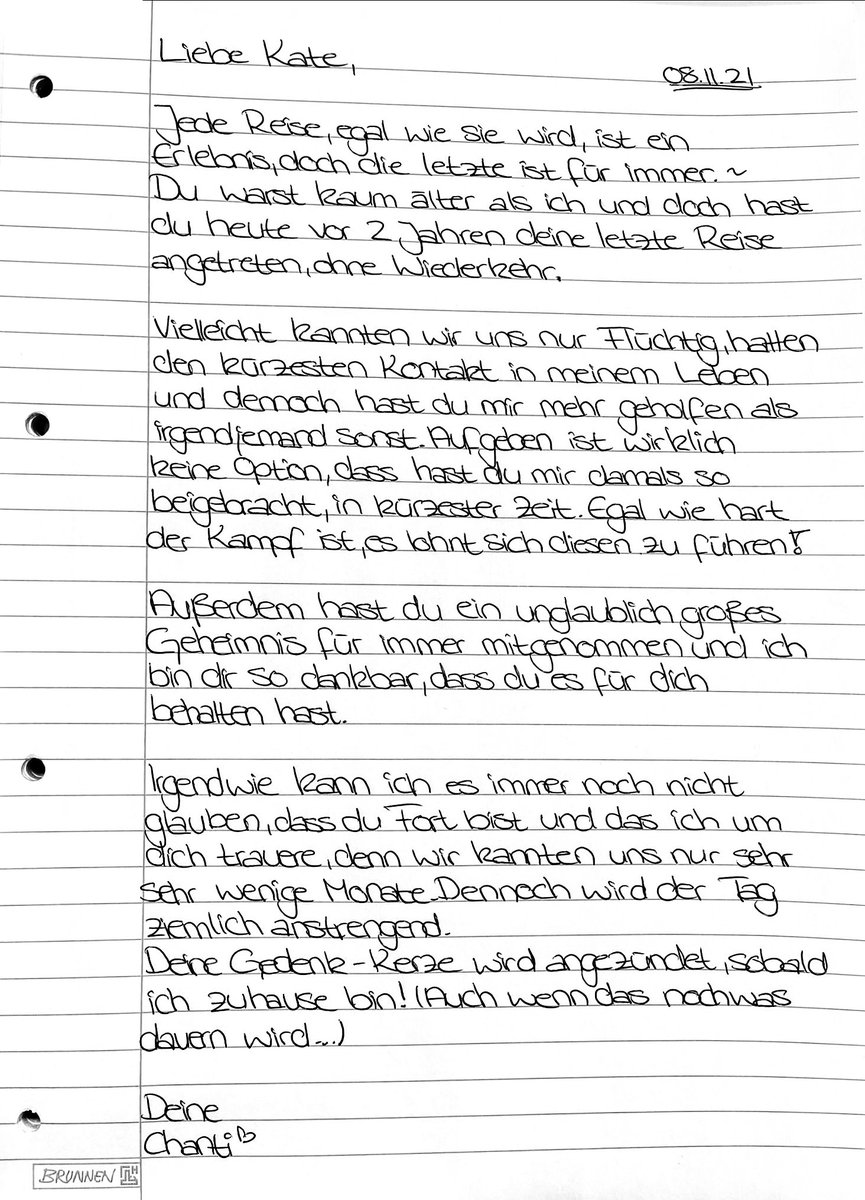 Liebe Kate,
08.11.21
Jede Reise, egal wie sie wird, ist ein
Erlebnis, doch die letzte ist für immer. ~
Du warst kaum älter als ich und doch hast
du heute vor 2 Jahren deine letzte Reise
angetreten, ohne Wiederkehr.
Vielleicht kannten wir uns nur Flüchtig, hatten
den kürzesten Kontakt in meinem Leben
und dennoch hast du mir mehr geholfen als
irgendjemand sonst. Aufgeben ist wirklich
keine Option, dass hast du mir damals so
beigebracht, in kürzester Zeit. Egal wie hart
der Kampf ist, es lohnt sich diesen zu führen!
Außerdem hast du ein unglaublich großes
Geheimnis für immer mitgenommen und ich
bin dir so dankbar, dass du es für dich
behalten hast.
Irgendwie kann ich es immer noch nicht
glauben, dass du Fort bist und das ich um
dich trauere, denn wir kannten uns nur sehr
sehr wenige Monate. Dennoch wird der Tag
ziemlich anstrengend.
Deine Gedenk-Kerze wird angezündet, sobald
ich zuhause bin! (Auch wenn das noch was
dauern wird...)
Deine
Chanti ♡
BRUNNEN